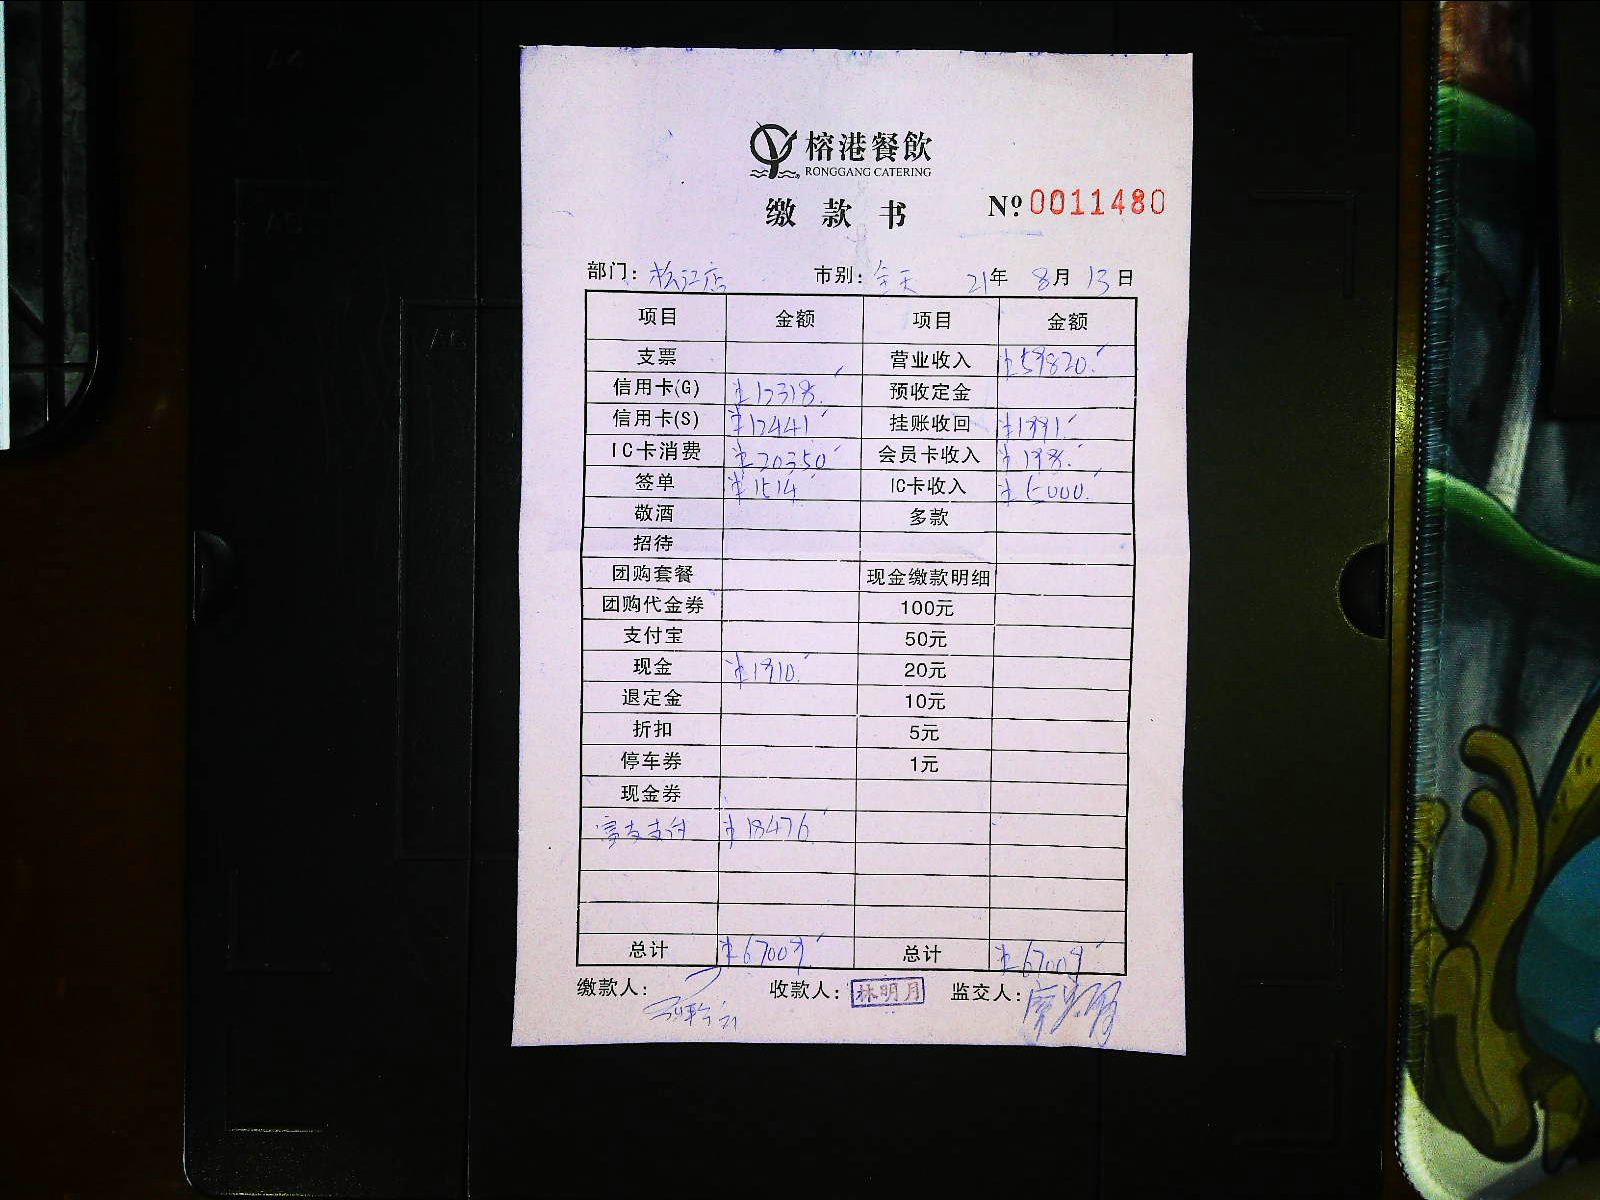 榕港餐飲
RONGGANG CATERING
缴款书 Nº 0011480
部门：松江店 市别：全天 21年 8月 13日
项目 金额 项目 金额
支票 营业收入 ¥59820.
信用卡(G) ¥12318. 预收定金
信用卡(S) ¥12441 挂账收回 ¥1991.
IC卡消费 ¥20350 会员卡收入 ¥198.
签单 ¥1514 IC卡收入 ¥5000.
敬酒 多款
招待
团购套餐 现金缴款明细
团购代金券 100元
支付宝 50元
现金 ¥1910. 20元
退定金 10元
折扣 5元
停车券 1元
现金券
富友支付 ¥18476
总计 ¥67009. 总计 ¥67009
缴款人： 收款人：林明月 监交人：